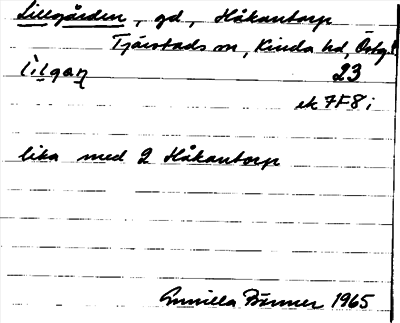 Lillgården, gd, Håkantorp
Tjärstads sn, Kinda hd, Östg.l
lilgaɳ 23
ek 7F8i
lika med 2 Håkantorp
Gunilla Bömer 1965